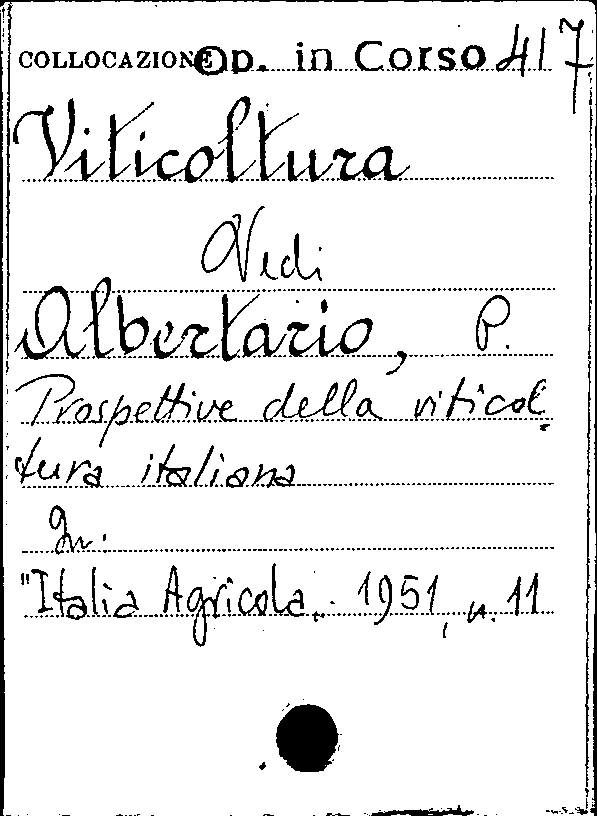 COLLOCAZIONE Op. in Corso 417
Viticoltura
Vedi
Albertario, P.
Prospettive della viticol
tura italiana
In:
"Italia Agricola„ 1951, n. 11